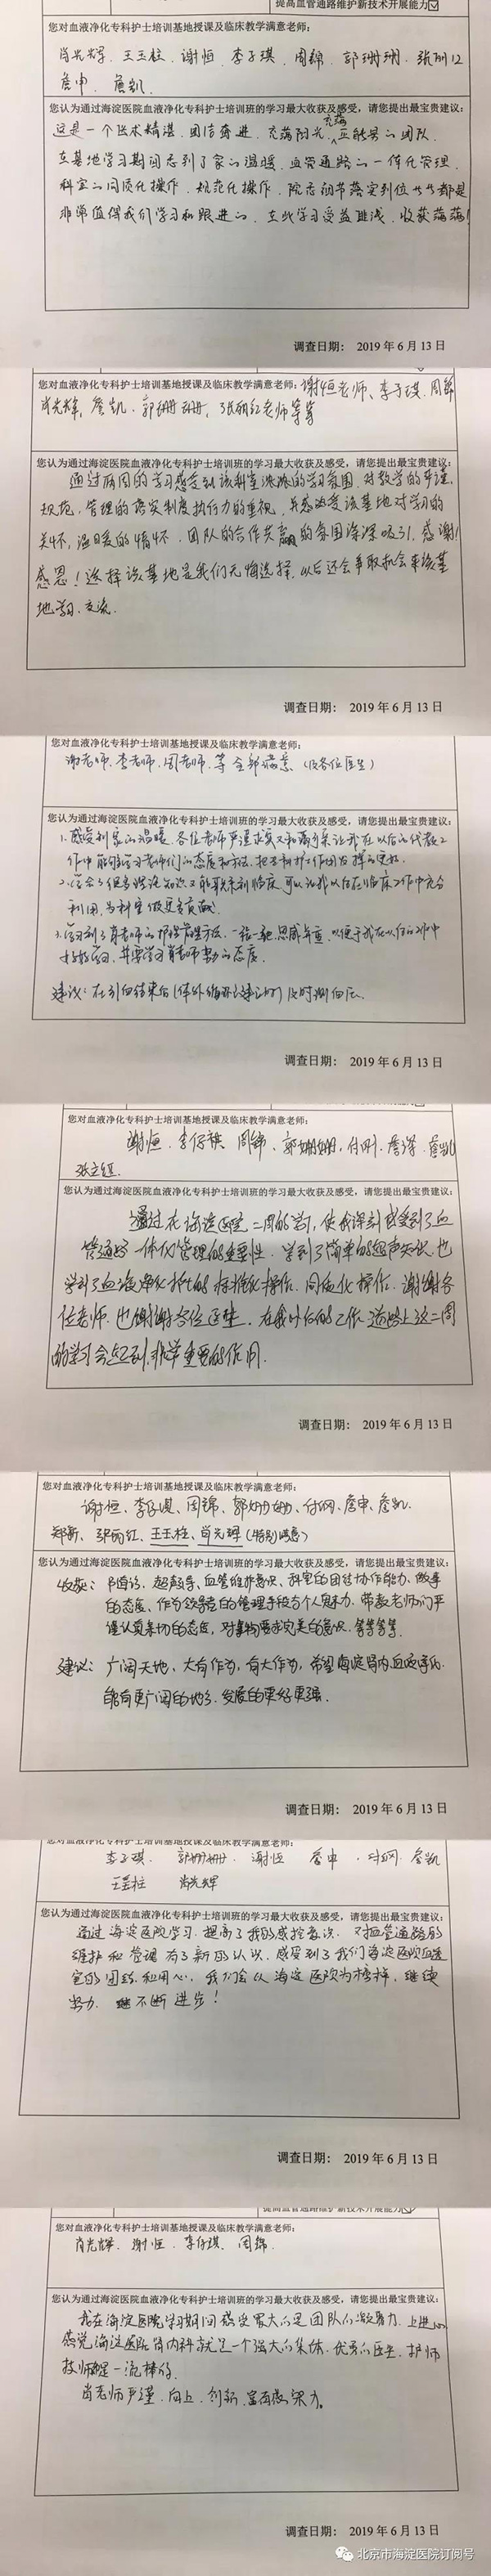 提高血管通路维护新技术开展能力☑
您对血液净化专科护士培训基地授课及临床教学满意老师:
肖光辉、王玉柱、谢恒、李子琪、周锦、郭珊珊、张丽红
詹申、詹凯
您认为通过海淀医院血液净化专科护士培训班的学习最大收获及感受,请您提出最宝贵建议:
这是一个技术精湛、团结奋进、充满阳光、充满正能量的团队
在基地学习期间感到了家的温暖、血管通路的一体化管理、
科室的同质化操作、规范化操作、院感细节落实到位等等都是
非常值得我们学习和跟进的、在此学习受益匪浅、收获满满!
调查日期: 2019 年 6 月 13 日
您对血液净化专科护士培训基地授课及临床教学满意老师:谢恒老师、李子琪、周锦
肖光辉,詹凯、郭珊珊,张丽红老师等等
您认为通过海淀医院血液净化专科护士培训班的学习最大收获及感受,请您提出最宝贵建议:
通过两周的学习感受到该科室浓浓的学习氛围,对教学的严谨、
规范,管理的落实制度执行力的重视,并感受该基地对学习的
关怀,温暖的情怀、团队的合作共赢的氛围深深吸引,感谢!
感恩!选择该基地是我们无悔选择,以后还会争取机会来该基
地学习、交流.
调查日期: 2019 年 6 月 13 日
您对血液净化专科护士培训基地授课及临床教学满意老师:
谢老师、李老师、周老师、等 全部满意 (及各位医生)
您认为通过海淀医院血液净化专科护士培训班的学习最大收获及感受,请您提出最宝贵建议:
1.感受到家的温暖、各位老师严谨求真又和蔼可亲让我在以后的代教工
作中能够学习老师们的态度和方法、把专科护士作用发挥的更好.
可以让我以后在临床工作中充分
利用,为科室做更多贡献
以便于我在以后的工作中
好好学习,并要学习肖老师努力的态度.
建议:在引血结束后(体外循环建立时)及时测血压.
调查日期: 2019 年 6 月 13 日
您对血液净化专科护士培训基地授课及临床教学满意老师:
谢恒、李子琪、周锦、郭姗姗、付刚、詹深、詹凯
您认为通过海淀医院血液净化专科护士培训班的学习最大收获及感受,请您提出最宝贵建议:
通过在海淀医院二周的学习,使我深刻感受到了血
管通路一体化管理的重要性,学到了简单的超声知识,也
学到了血液净化护士的标准化操作、同质化操作、谢谢各
位老师、也谢谢各位医生,在我以后的工作道路上这二周
的学习会起到非常重要的作用.
调查日期: 2019 年 6 月 13 日
您对血液净化专科护士培训基地授课及临床教学满意老师:
谢恒、李子琪、周锦、郭姗姗、付刚、詹申、詹凯
郑新、张丽红、王玉柱、肖光辉(特别满意)
您认为通过海淀医院血液净化专科护士培训班的学习最大收获及感受,请您提出最宝贵建议:
收获:内瘘的、超声导、血管维护意识、科室的团结协作能力、做事
的态度、作为领导者的管理手段与个人魅力、带教老师们严
谨认真亲切的态度,对事物要求完美的意识、等等等等
建议:广阔天地、大有作为,有大作为,希望海淀肾内血液净化
能有更广阔的地方、发展的更好更强.
调查日期: 2019 年 6 月 13 日
您对血液净化专科护士培训基地授课及临床教学满意老师:
李子琪、郭珊珊、谢恒、詹申、付刚、詹凯
王玉柱 肖光辉
您认为通过海淀医院血液净化专科护士培训班的学习最大收获及感受,请您提出最宝贵建议:
通过海淀医院学习,提高了我的感控意识、对血管通路的
维护和管理有了新的认识,感受到了我们海淀医院血透
室的团结和用心,我们会以海淀医院为榜样,继续
努力,不断进步!
调查日期: 2019 年 6 月 13 日
提高血管通路维护新技术开展能力☑
您对血液净化专科护士培训基地授课及临床教学满意老师:
肖光辉、谢恒、李子琪、周锦
您认为通过海淀医院血液净化专科护士培训班的学习最大收获及感受,请您提出最宝贵建议:
我在海淀医院学习期间感受最大的是团队的凝聚力、上进心
感觉海淀医院肾内科就是一个强大的集体、优秀的医生、护师
技师都是一流棒的
肖老师严谨、向上、创新、富有感染力。
调查日期: 2019 年 6 月 13 日
北京市海淀医院订阅号